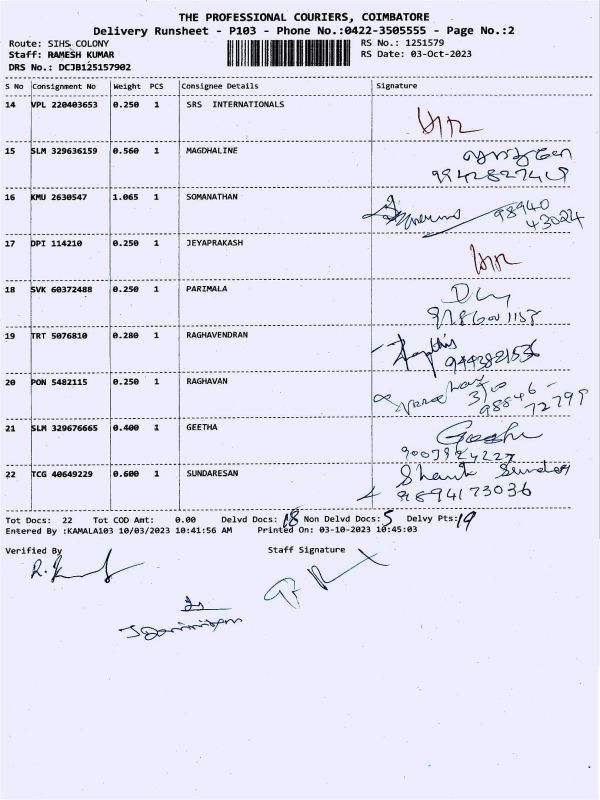 THE PROFESSIONAL COURIERS, COIMBATORE
Delivery Runsheet - P103 - Phone No.:0422-3505555 - Page No.:2
Route: SIHS COLONY RS No.: 1251579
Staff: RAMESH KUMAR RS Date: 03-Oct-2023
DRS No.: DCJB125157902
S No Consignment No Weight PCS Consignee Details Signature
14 VPL 220403653 0.250 1 SRS INTERNATIONALS
15 SLM 329636159 0.560 1 MAGDHALINE
16 KMU 2630547 1.065 1 SOMANATHAN 98940
43024
17 DPI 114210 0.250 1 JEYAPRAKASH
18 SVK 60372488 0.250 1 PARIMALA
19 TRT 5076810 0.280 1 RAGHAVENDRAN
20 PON 5482115 0.250 1 RAGHAVAN 98846 -
72799
21 SLM 329676665 0.400 1 GEETHA Geetha
22 TCG 40649229 0.600 1 SUNDARESAN
9894173036
Tot Docs: 22 Tot COD Amt: 0.00 Delvd Docs: 18 Non Delvd Docs: 5 Delvy Pts: 19
Entered By :KAMALA103 10/03/2023 10:41:56 AM Printed On: 03-10-2023 10:45:03
Verified By Staff Signature